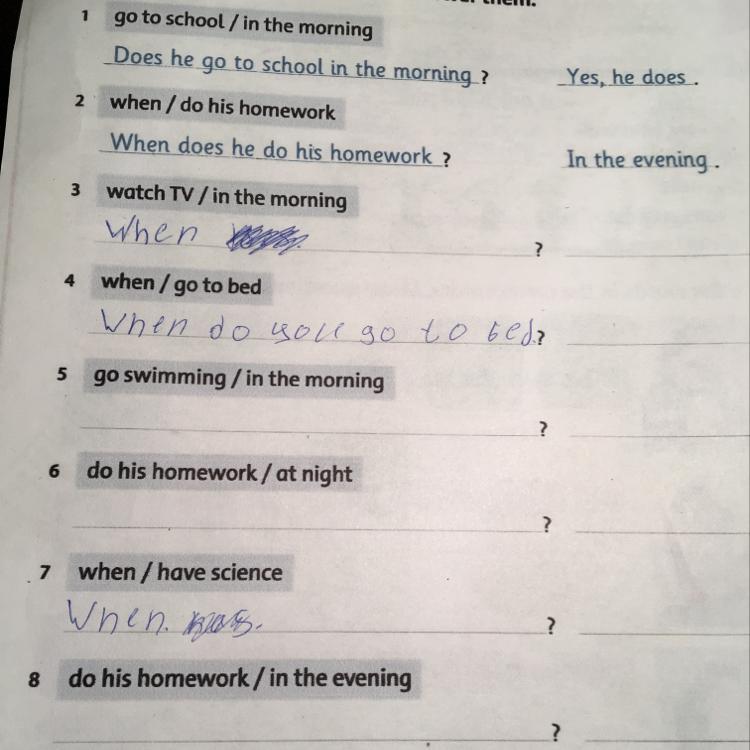 them.
1 go to school / in the morning
Does he go to school in the morning ? Yes, he does .
2 when / do his homework
When does he do his homework ? In the evening .
3 watch TV / in the morning
When ?
4 when / go to bed
When do you go to bed. ?
5 go swimming / in the morning
?
6 do his homework / at night
?
7 when / have science
When. ?
8 do his homework / in the evening
?